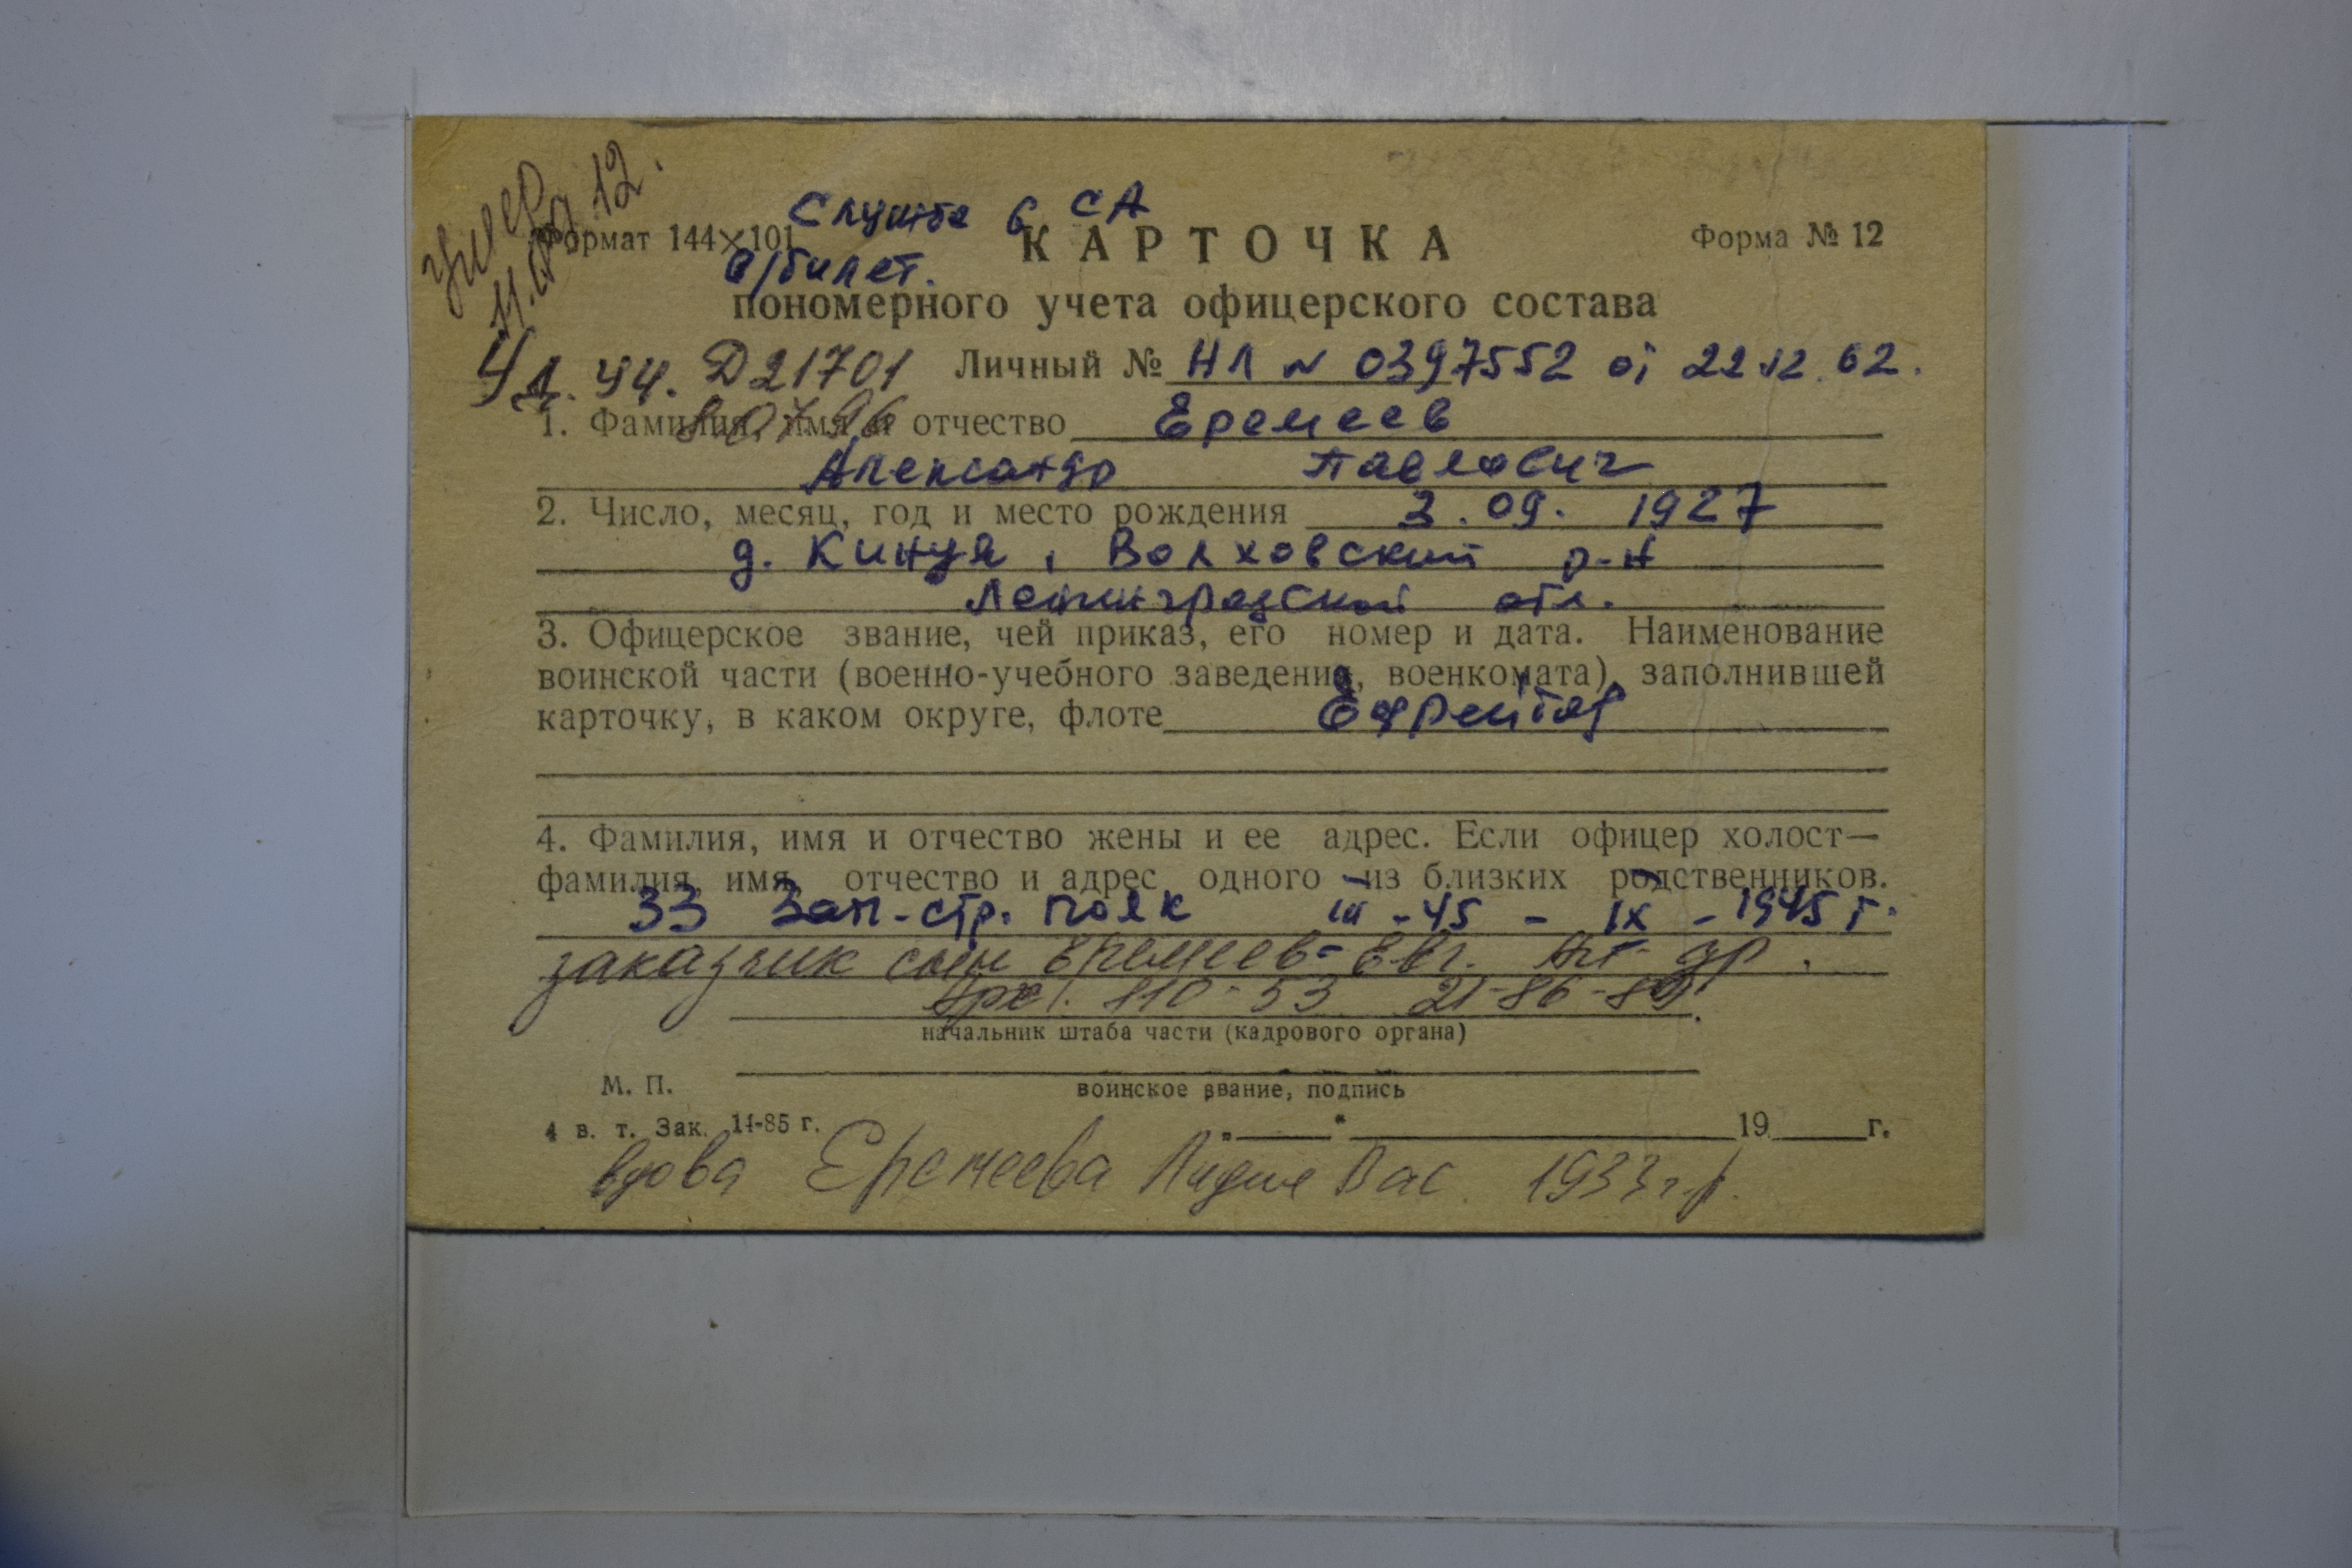 Умер
11.07.12.
Служба в СА
Формат 144×101
КАРТОЧКА
Форма № 12
в/билет.
пономерного учета офицерского состава
Уд. УЧ. Д21701
Личный № НЛ № 0397552 от 22.12.62.
1. Фамилия, имя и отчество Еремеев
Александр Павлович
2. Число, месяц, год и место рождения 3.09. 1927
д. Кинуя, Волховский р-н
Ленинградской обл.
3. Офицерское звание, чей приказ, его номер и дата. Наименование
воинской части (военно-учебного заведения, военкомата), заполнившей
карточку, в каком округе, флоте Ефрейтор
4. Фамилия, имя и отчество жены и ее адрес. Если офицер холост—
фамилия, имя, отчество и адрес одного из близких родственников.
33 Зап-стр. полк III-45 - IX-1945 г.
заказчик сын Еремеев Евг.
110-53 21-86-
начальник штаба части (кадрового органа)
М. П.
воинское звание, подпись
4 в. т. Зак. 14-85 г.
„ “ 19 г.
вдова Еремеева Лидия Вас. 1933 г.р.